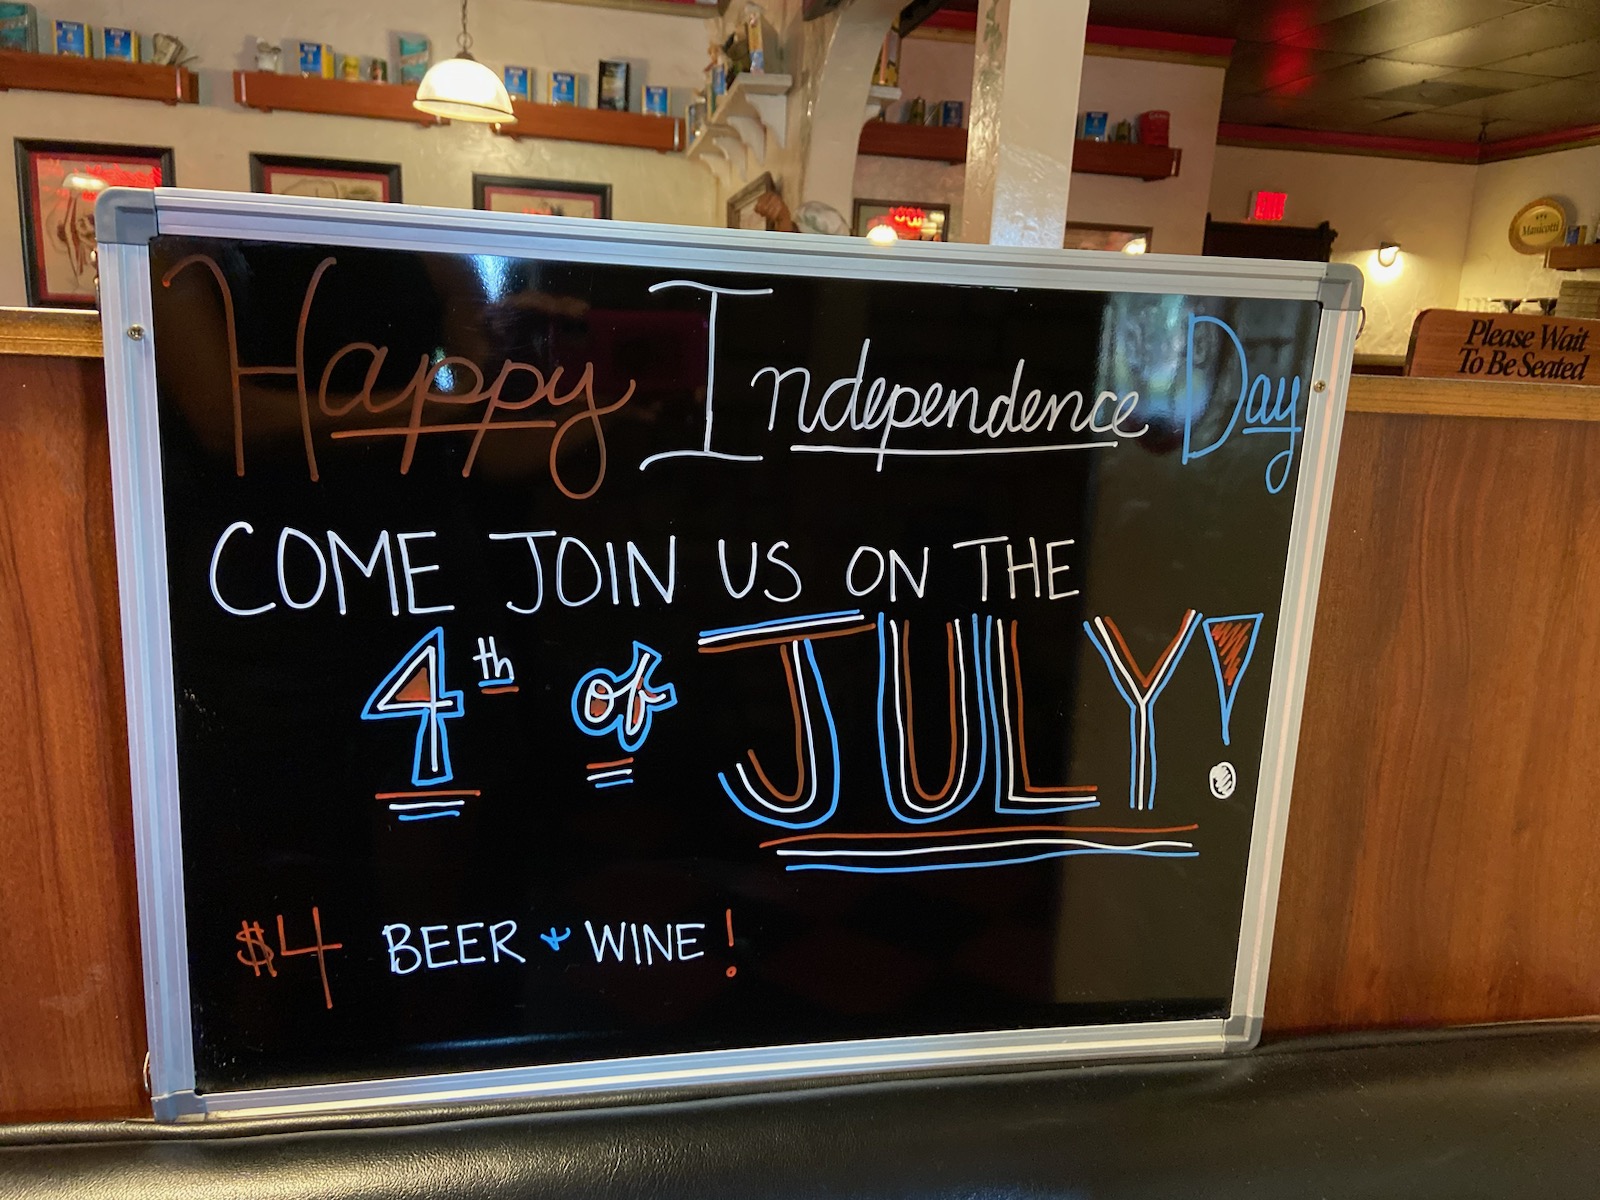 Happy Independence Day
COME JOIN US ON THE
4th of JULY!
$4 BEER + WINE!
Please Wait
To Be Seated
Manicotti